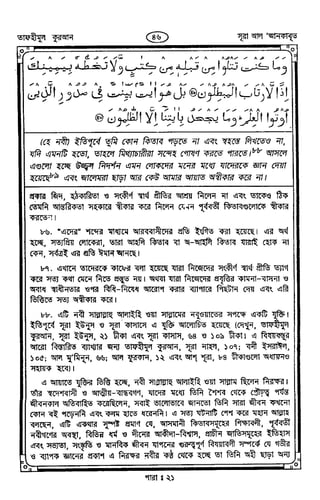 তাফহীমুল কুরআন
৪৬
সূরা আল 'আনকাবূত
وَمَا كُنْتَ تَتْلُوا مِنْ قَبْلِهِ مِنْ كِتٰبٍ وَّلَا تَخُطُّهٗ بِيَمِيْنِكَ
اِذًا لَّارْتَابَ الْمُبْطِلُوْنَ ۞ بَلْ هُوَ اٰيٰتٌۢ بَيِّنٰتٌ فِيْ صُدُوْرِ الَّذِيْنَ
اُوْتُوا الْعِلْمَ ؕ وَمَا يَجْحَدُ بِاٰيٰتِنَاۤ اِلَّا الظّٰلِمُوْنَ ۞
(হে নবী) ইতিপূর্বে তুমি কোন কিতাব পড়তে না এবং স্বহস্তে লিখতেও না,
যদি এমনটি হতো, তাহলে মিথ্যাচারীরা সন্দেহ পোষণ করতে পারতো।৮৮ আসলে
এগুলো হচ্ছে উজ্জ্বল নিদর্শন এমন লোকদের মনের মধ্যে যাদেরকে জ্ঞান দেয়া
হয়েছে৮৯ এবং জালেমরা ছাড়া আর কেউ আমার আয়াত অস্বীকার করে না।
প্রকার জিদ, হঠকারিতা ও সংকীর্ণ স্বার্থ প্রীতির আশ্রয় নিলেন না এবং তাকেও ঠিক
তেমনি আন্তরিকতা সহকারে স্বীকার করে নিলেন যেমন পূর্ববর্তী কিতাবগুলোকে স্বীকার
করতেন।
৮৬. "এদের" শব্দের মাধ্যমে আরববাসীদের প্রতি ইংগিত করা হয়েছে। এর অর্থ
হচ্ছে, সত্যপ্রিয় লোকেরা, তারা আহলি কিতাব বা অ-আহলি কিতাব যারাই হোক না
কেন, সর্বত্রই এর প্রতি ঈমান আনছে।
৮৭. এখানে তাদেরকে কাফের বলা হয়েছে যারা নিজেদের সংকীর্ণ স্বার্থ প্রীতি ত্যাগ
করে সত্য কথা মেনে নিতে প্রস্তুত নয়। অথবা যারা নিজেদের প্রবৃত্তির কামনা-বাসনা ও
অবাধ স্বাধীনতার ওপর বিধি-নিষেধ আরোপ করার ব্যাপারে পিছটান দেয় এবং এরি
ভিত্তিতে সত্য অস্বীকার করে।
৮৮. এটি নবী সাল্লাল্লাহু আলাইহি ওয়া সাল্লামের নবুওয়াতের সপক্ষে একটি যুক্তি।
ইতিপূর্বে সূরা ইউনুস ও সূরা কাসাসে এ যুক্তি আলোচিত হয়েছে (দেখুন, তাফহীমুল
কুরআন, সূরা ইউনুস, ২১ টীকা এবং সূরা কাসাস, ৬৪ ও ১০৯ টীকা। এ বিষয়বস্তুর
আরো বিস্তারিত ব্যাখ্যার জন্য তাফহীমুল কুরআন, সূরা নাহল, ১০৭; বনী ইসরাঈল,
১০৫; আল মু'মিনূন, ৬৬; আল ফুরকান, ১২ এবং আশ শূরা, ৮৪ টীকাগুলো অধ্যয়নও
সহায়ক হবে)।
এ আয়াতে যুক্তির ভিত্তি হচ্ছে, নবী সাল্লাল্লাহু আলাইহি ওয়া সাল্লাম ছিলেন নিরক্ষর।
তাঁর স্বদেশবাসী ও আত্মীয়-বান্ধবগণ, যাদের মধ্যে তিনি শৈশব থেকে প্রৌঢ়ত্ব পর্যন্ত
জীবনকাল অতিবাহিত করেছিলেন, সবাই ভালোভাবে জানতো তিনি সারা জীবন কখনো
কোন বই পড়েননি এবং কলম হাতে ধরেননি। এ সত্য ঘটনাটি পেশ করে মহান আল্লাহ
বলছেন, এটি একথার সুস্পষ্ট প্রমাণ যে, আসমানী কিতাবসমূহের শিক্ষাবলী, পূর্ববর্তী
নবীগণের অবস্থা, বিভিন্ন ধর্ম ও দীনের আকীদা-বিশ্বাস, প্রাচীন জাতিসমূহের ইতিহাস
এবং সভ্যতা, সংস্কৃতি ও মানবিক জীবন যাপনের গুরুত্বপূর্ণ বিষয়াবলী সম্পর্কে যে গভীর
ও ব্যাপক জ্ঞানের প্রকাশ এ নিরক্ষর নবীর কণ্ঠ থেকে হচ্ছে তা তিনি অহী ছাড়া অন্য
পারা ঃ ২১